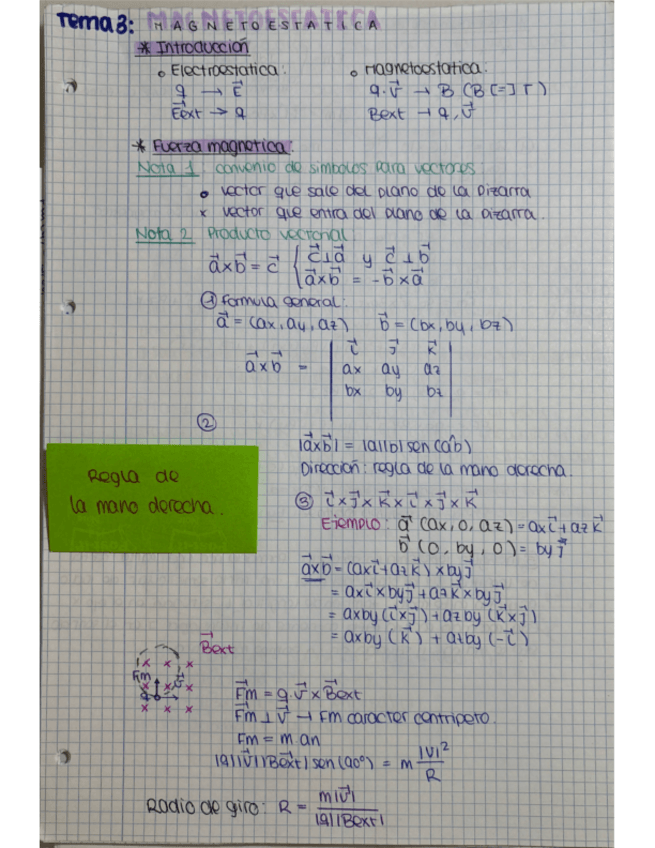 Tema 3: MAGNETOESTATICA
* Introducción
○ Electroestatica:
q → E⃗
E⃗ext → q
○ Magnetoestatica:
q·v⃗ → B (B [=] T)
Bext → q, v⃗
* Fuerza magnetica:
Nota 1: convenio de simbolos para vectores:
• vector que sale del plano de la pizarra
x vector que entra del plano de la pizarra.
Nota 2 Producto vectorial
a⃗ x b⃗ = c⃗ { c⃗ ⊥ a⃗ y c⃗ ⊥ b⃗
a⃗ x b⃗ = -b⃗ x a⃗
① Formula general:
a⃗ = (ax, ay, az) b⃗ = (bx, by, bz)
a⃗ x b⃗ = | i⃗ j⃗ k⃗ |
| ax ay az |
| bx by bz |
②
|a⃗ x b⃗| = |a||b| sen(a^b)
Dirección: regla de la mano derecha.
Regla de
la mano derecha.
③ i⃗ x j⃗ x k⃗ x i⃗ x j⃗ x k⃗
Ejemplo: a⃗ (ax, 0, az) = ax i⃗ + az k⃗
b⃗ (0, by, 0) = by j⃗
a⃗ x b⃗ = (ax i⃗ + az k⃗) x by j⃗
= ax i⃗ x by j⃗ + az k⃗ x by j⃗
= axby (i⃗ x j⃗) + azby (k⃗ x j⃗)
= axby (k⃗) + azby (-i⃗)
B⃗ext
x x x
Fm
x x v⃗ x
q
x x x
F⃗m = q·v⃗ x B⃗ext
F⃗m ⊥ v⃗ → Fm caracter centripeto.
Fm = m·an
|q||v⃗||B⃗ext| sen(90°) = m |v|²/R
Radio de giro: R = m|v⃗| / |q||Bext|